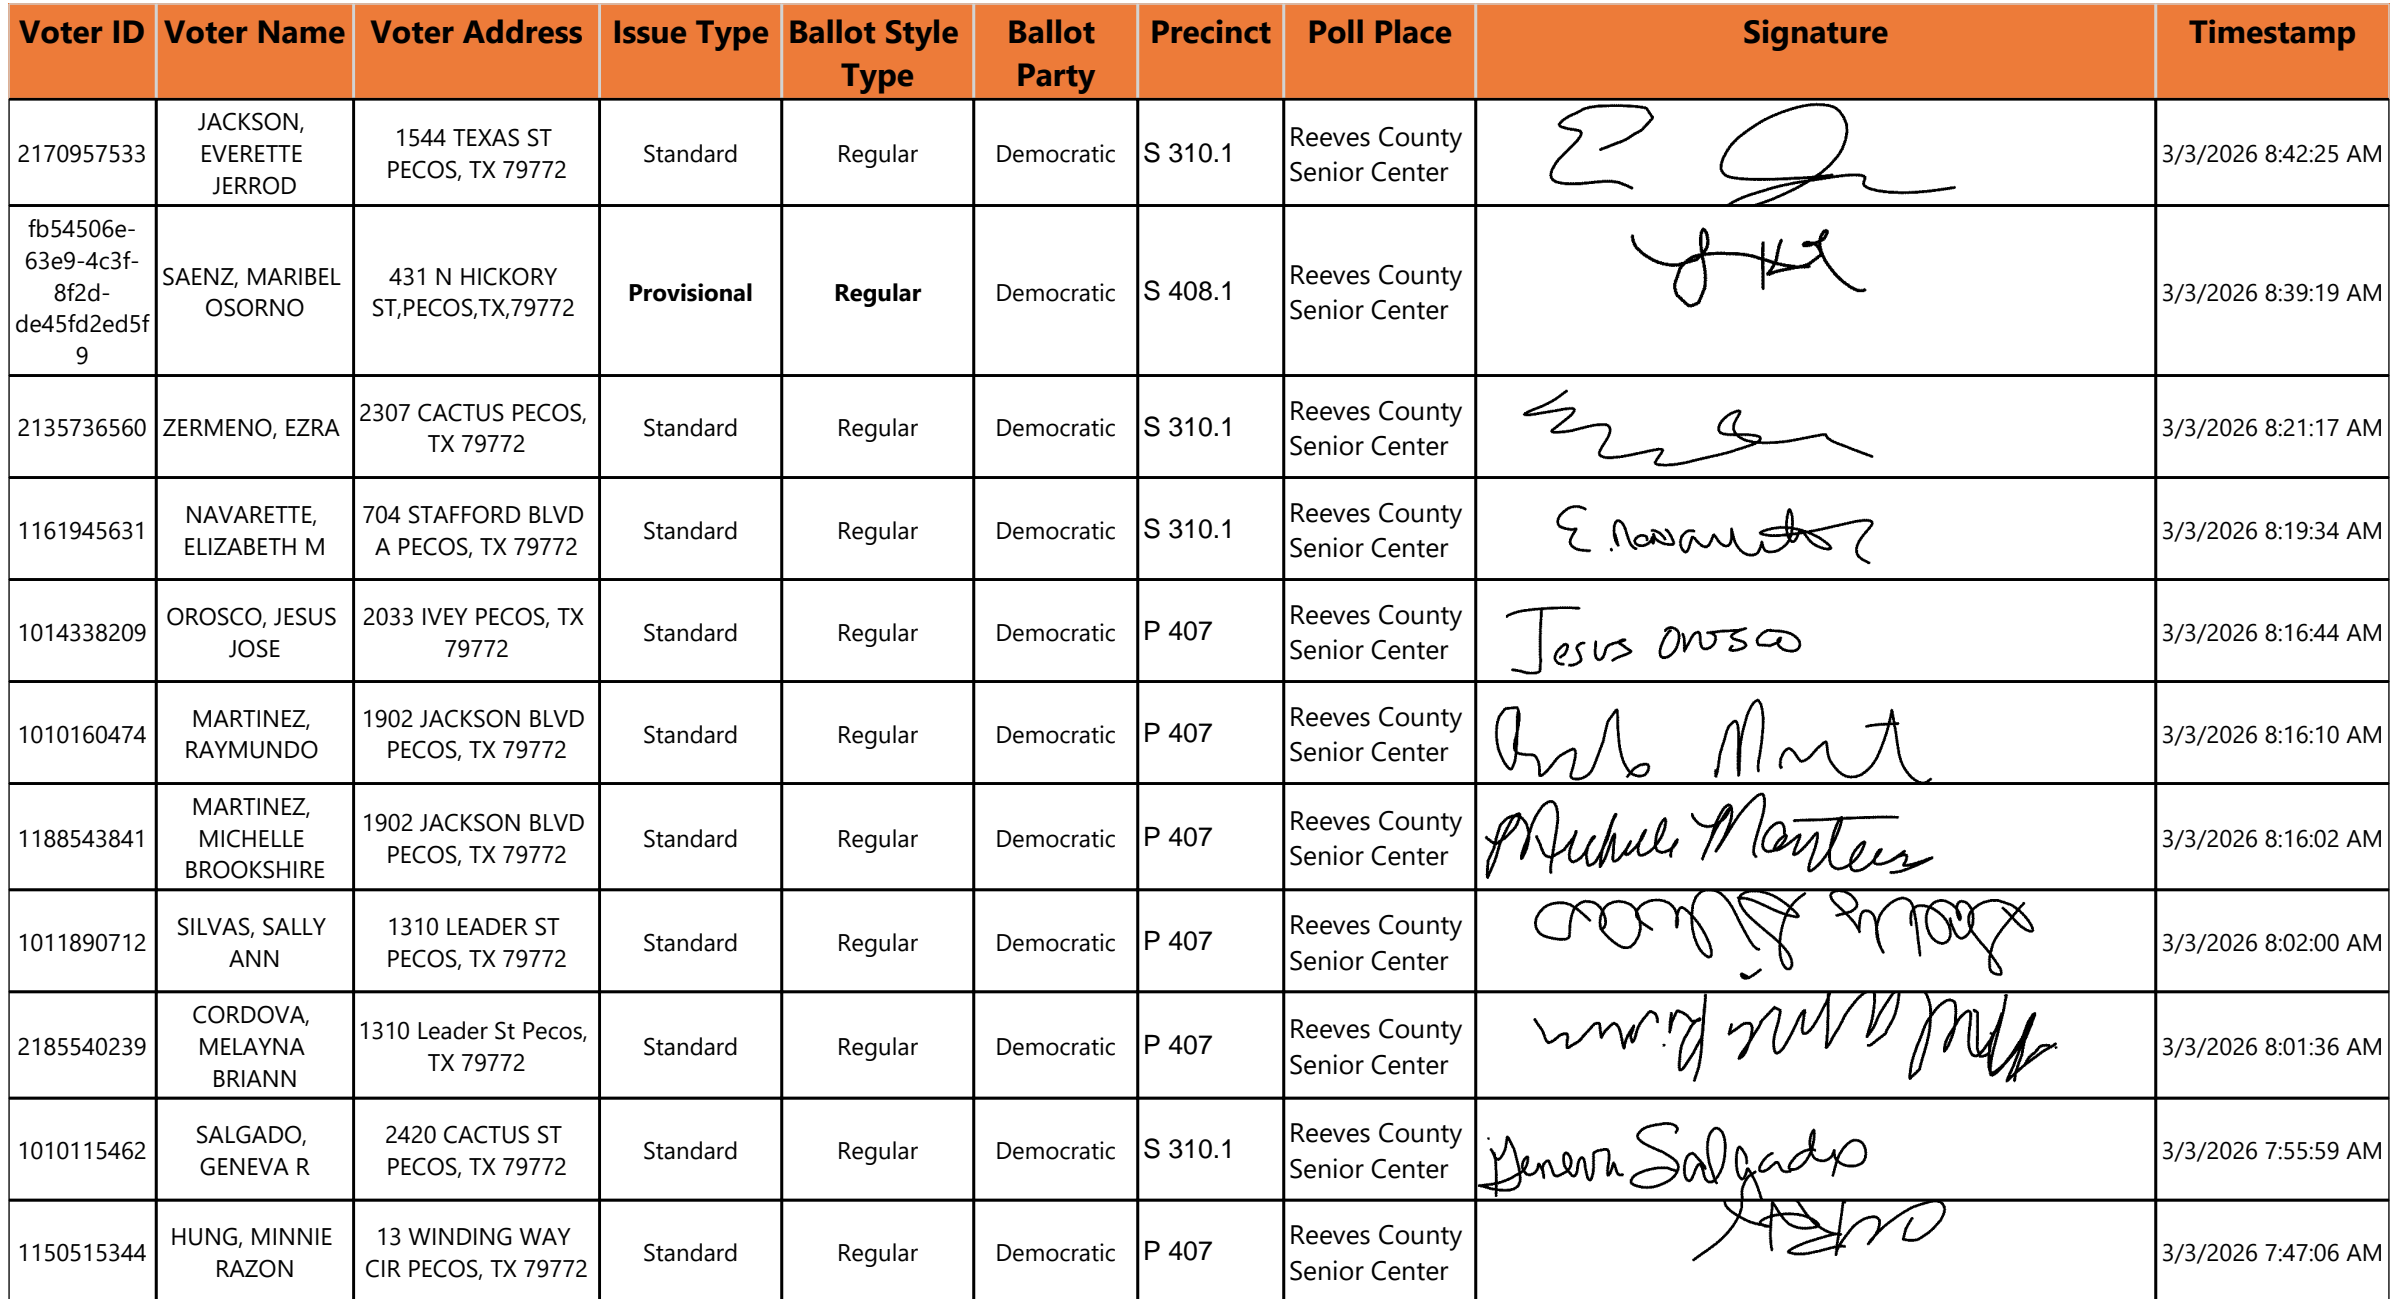 Voter ID Voter Name Voter Address Issue Type Ballot Style Type Ballot Party Precinct Poll Place Signature Timestamp
2170957533 JACKSON, EVERETTE JERROD 1544 TEXAS ST PECOS, TX 79772 Standard Regular Democratic S 310.1 Reeves County Senior Center 3/3/2026 8:42:25 AM
fb54506e-63e9-4c3f-8f2d-de45fd2ed5f9 SAENZ, MARIBEL OSORNO 431 N HICKORY ST,PECOS,TX,79772 Provisional Regular Democratic S 408.1 Reeves County Senior Center 3/3/2026 8:39:19 AM
2135736560 ZERMENO, EZRA 2307 CACTUS PECOS, TX 79772 Standard Regular Democratic S 310.1 Reeves County Senior Center 3/3/2026 8:21:17 AM
1161945631 NAVARETTE, ELIZABETH M 704 STAFFORD BLVD A PECOS, TX 79772 Standard Regular Democratic S 310.1 Reeves County Senior Center 3/3/2026 8:19:34 AM
1014338209 OROSCO, JESUS JOSE 2033 IVEY PECOS, TX 79772 Standard Regular Democratic P 407 Reeves County Senior Center Jesus Orosco 3/3/2026 8:16:44 AM
1010160474 MARTINEZ, RAYMUNDO 1902 JACKSON BLVD PECOS, TX 79772 Standard Regular Democratic P 407 Reeves County Senior Center 3/3/2026 8:16:10 AM
1188543841 MARTINEZ, MICHELLE BROOKSHIRE 1902 JACKSON BLVD PECOS, TX 79772 Standard Regular Democratic P 407 Reeves County Senior Center Michelle Martinez 3/3/2026 8:16:02 AM
1011890712 SILVAS, SALLY ANN 1310 LEADER ST PECOS, TX 79772 Standard Regular Democratic P 407 Reeves County Senior Center 3/3/2026 8:02:00 AM
2185540239 CORDOVA, MELAYNA BRIANN 1310 Leader St Pecos, TX 79772 Standard Regular Democratic P 407 Reeves County Senior Center 3/3/2026 8:01:36 AM
1010115462 SALGADO, GENEVA R 2420 CACTUS ST PECOS, TX 79772 Standard Regular Democratic S 310.1 Reeves County Senior Center Geneva Salgado 3/3/2026 7:55:59 AM
1150515344 HUNG, MINNIE RAZON 13 WINDING WAY CIR PECOS, TX 79772 Standard Regular Democratic P 407 Reeves County Senior Center 3/3/2026 7:47:06 AM